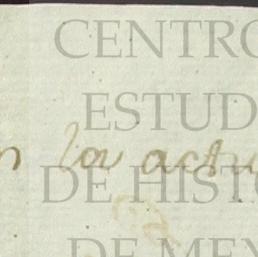 CENTRO
ESTUD
n la actu
DE HIST
DE MEX